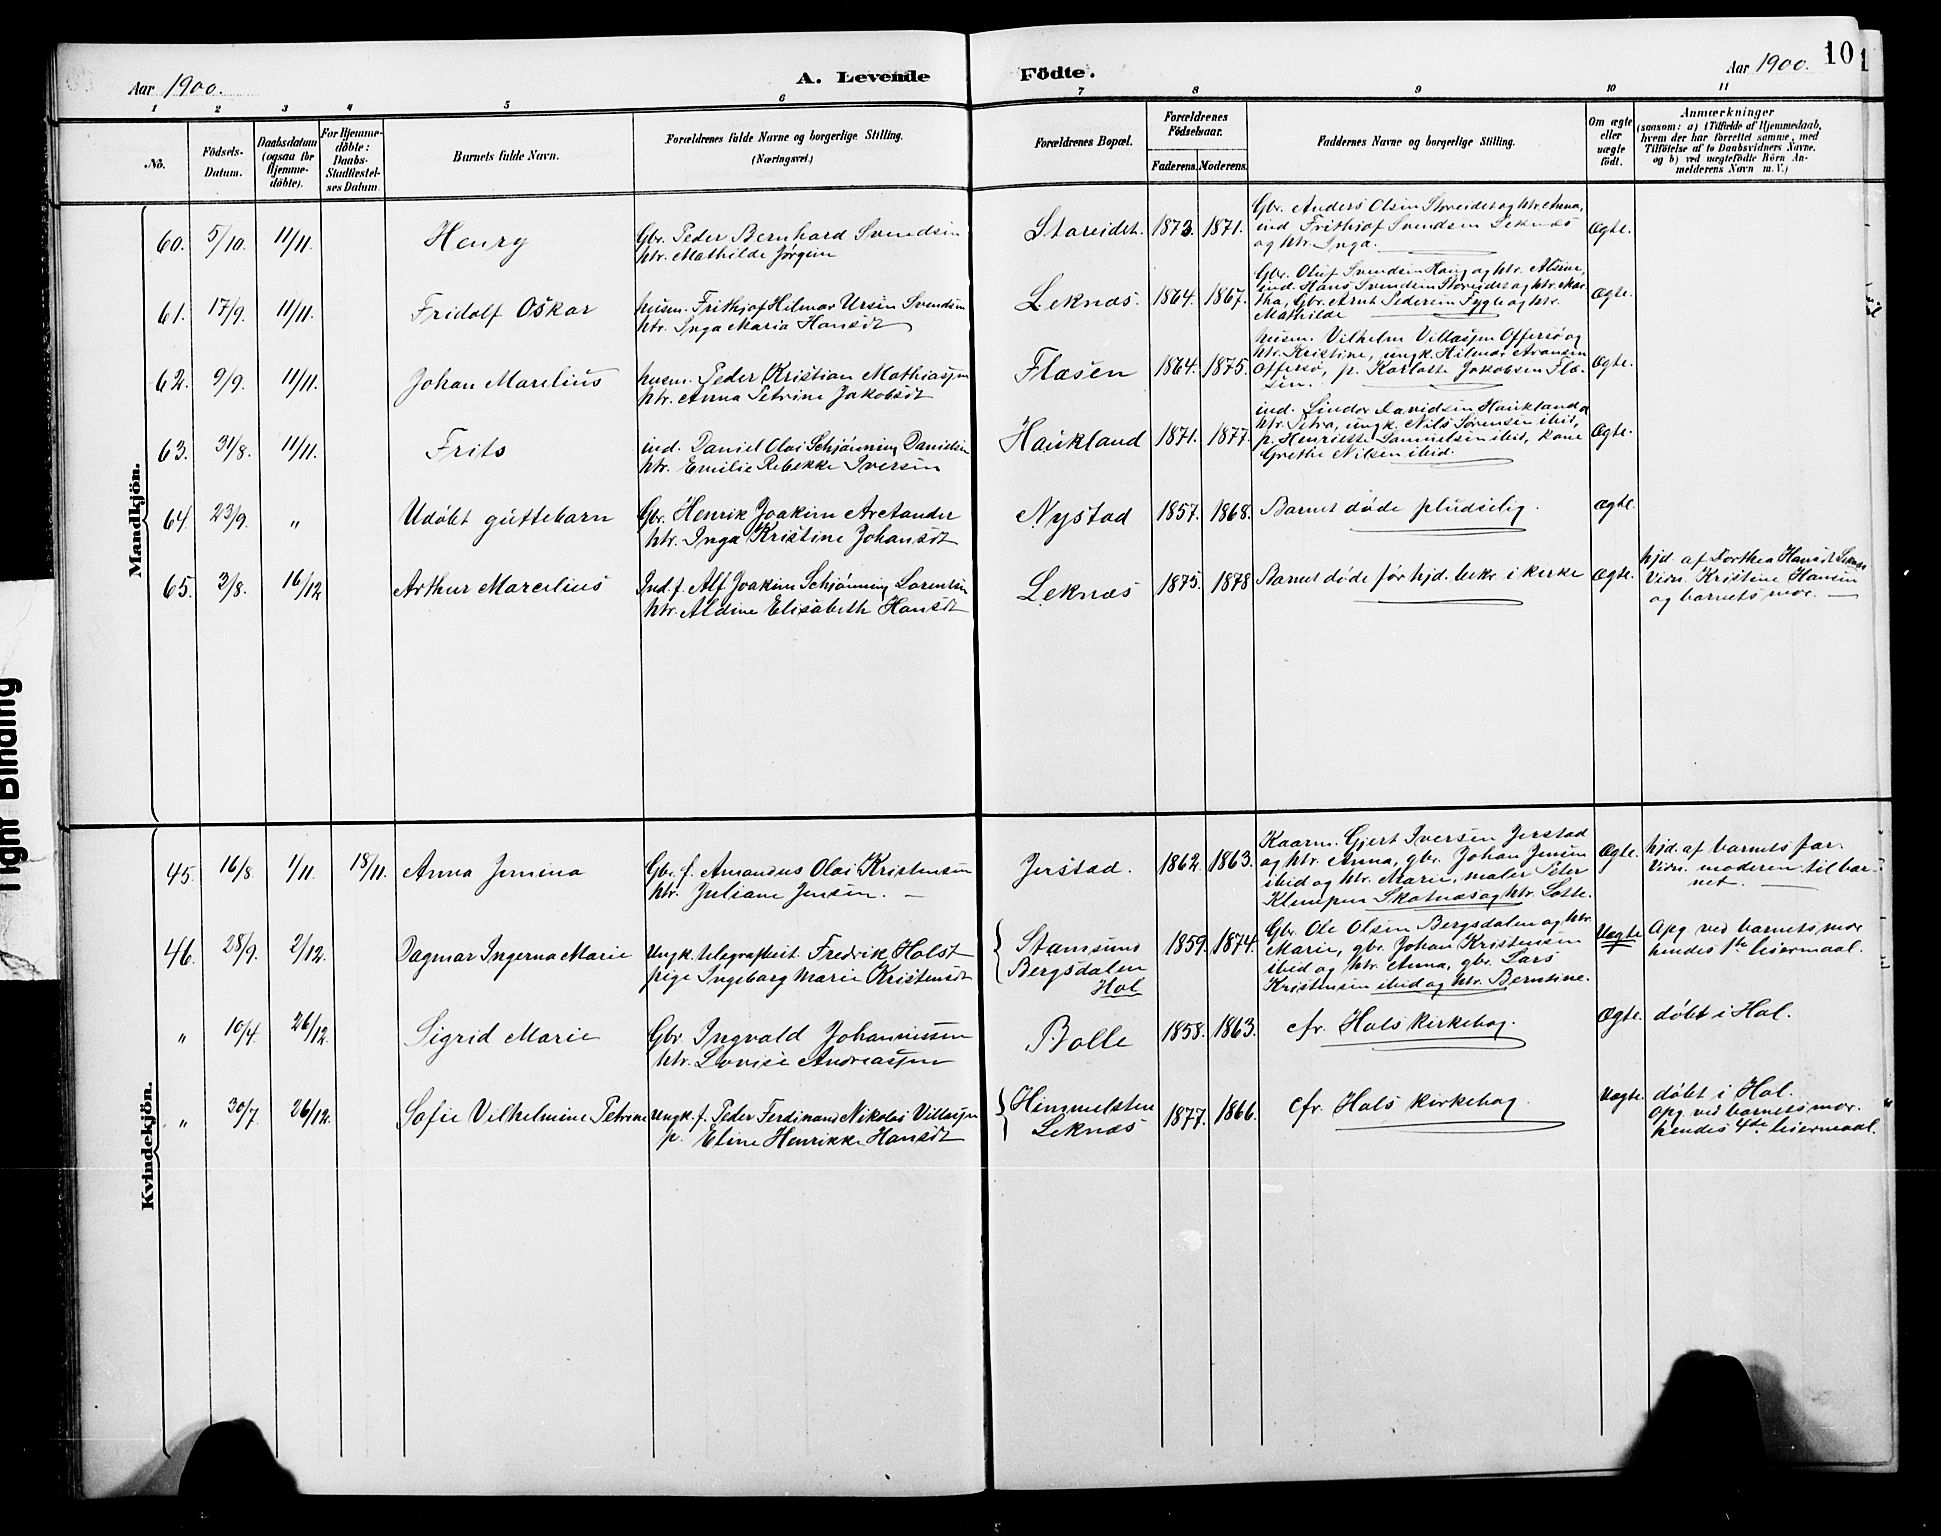 Aar 1900.
A. Levende Födte.
Aar 1900.
10
1 2 3 4 5 6 7 8 9 10 11
No.
Födsels-Datum.
Daabsdatum (ogsaa for Hjemme-döbte).
For Hjemme-döbte: Daabs-Stadfæstel-ses Datum.
Barnets fulde Navn.
Forældrenes fulde Navne og borgerlige Stilling. (Næringsvei.)
Forældrenes Bopæl.
Forældrenes Födselsaar.
Faderens. Moderens.
Faddernes Navne og borgerlige Stilling.
Om ægte eller uægte födt.
Anmærkninger
(saasom: a) i Tilfælde af Hjemmedaab,
hvem der har forrettet samme, med
Tilföielse af to Daabsvidners Navne.
og b) ved uægtefödte Börn An-
melderens Navn m. V.)
Mandkjön.
60. 5/10. 11/11. Henry
Gbr. Peder Bernhard Svendsen
htr. Mathilde Jørgin
Storeidet. 1873. 1871.
Gbr. Anders Olsen Storeidet og htr. Anna,
ind. Frithjof Svendsen Leknæs
og htr. Inga.
Ægte.
61. 17/9. 11/11. Fridolf Oskar
husm. Frithjof Hilmar Ursin Svendsen
htr. Inga Maria Hansdt
Leknæs. 1864. 1867.
Gbr. Oluf Svendsen Haug og htr. Alsine,
ind. Hans Svendsen Storeidet og htr. Mar-
tha, Gbr. Arnt Pedersen Fygle og htr.
Mathilde
Ægte.
62. 9/9. 11/11. Johan Marelius
husm. Peder Kristian Mathiassen
htr. Anna Petrine Jakobsdt
Flæsen 1864. 1875.
husm. Vilhelm Villassen Offersø og
htr. Kristine, ungk. Hilmar Aronsen
Offersø, p. Karlotte Jakobsen Flæ-
sen.
Ægte.
63. 31/8. 11/11. Frits
ind. Daniel Olai Schjönning Danielsen
htr. Emilie Rebekke Iversen
Haukland 1871. 1877.
ind. Sindor Davidsen Haukland og
htr. Petra, ungk. Nils Sørensen ibid,
p. Henriette Samuelsen ibid, kone
Grethe Nilsen ibid.
Ægte.
64. 23/9. " Udøbt guttebarn
Gbr. Henrik Joakim Arctander
htr. Inga Kristine Johansdt
Nystad 1857. 1868.
Barnet døde pludselig.
Ægte.
65. 3/8. 16/12 Arthur Marcelius
Ind. f. Alf Joakim Schjönning Lorentsen
htr. Aldine Elisabeth Hansdt
Leknæs 1875. 1878
Barnet døde før hjd. bekr. i kirke
Ægte.
hjd. af Dorthea Hansdt Leknæs
Vidn. Kristine Hansen
og barnets mor.
Kvindekjön.
45. 16/8. 1/11. 18/11. Anna Jemina
Gbr. f. Amandus Olai Kristensen
htr. Juliane Jensen.
Jerstad. 1862. 1863.
Kaarm. Gjert Iversen Jerstad
og htr. Anna, gbr. Johan Jensen
ibid og htr. Marie, maler Peter
Klempen Skotnæs og htr. Lotte.
Ægte.
hjd. af barnets far.
Vidn. moderen til bar-
net.
46. 28/9. 2/12. Dagmar Ingerna Marie
Ungk. telegrafbest. Fredrik Holst
pige Ingeborg Marie Kristensdt
Stamsund
Bergsdalen
Hol
1859. 1874.
Gbr. Ole Olsen Bergsdalen og htr.
Marie, gbr. Johan Kristensen
ibid og htr. Anna, gbr. Lars
Kristensen ibid og htr. Berntine.
Uægte
Opg. ved barnets mor
hendes 1ste leiermaal.
" 10/4. 26/12. Sigrid Marie
Gbr. Ingvald Johannessen
htr. Lovise Andreassen
Bolle 1858. 1863.
cfr. Hols kirkebog.
Ægte.
døbt i Hol.
" 30/7. 26/12. Sofie Vilhelmine Petrine
Ungk. f. Peder Ferdinand Nikolai Villassen
p. Eline Henrikke Hansdt
Himmelsten
Leknæs
1877. 1866.
cfr. Hols kirkebog.
Uægte
døbt i Hol.
Opg. ved barnets mor.
hendes 4de leiermaal.
Tight Binding